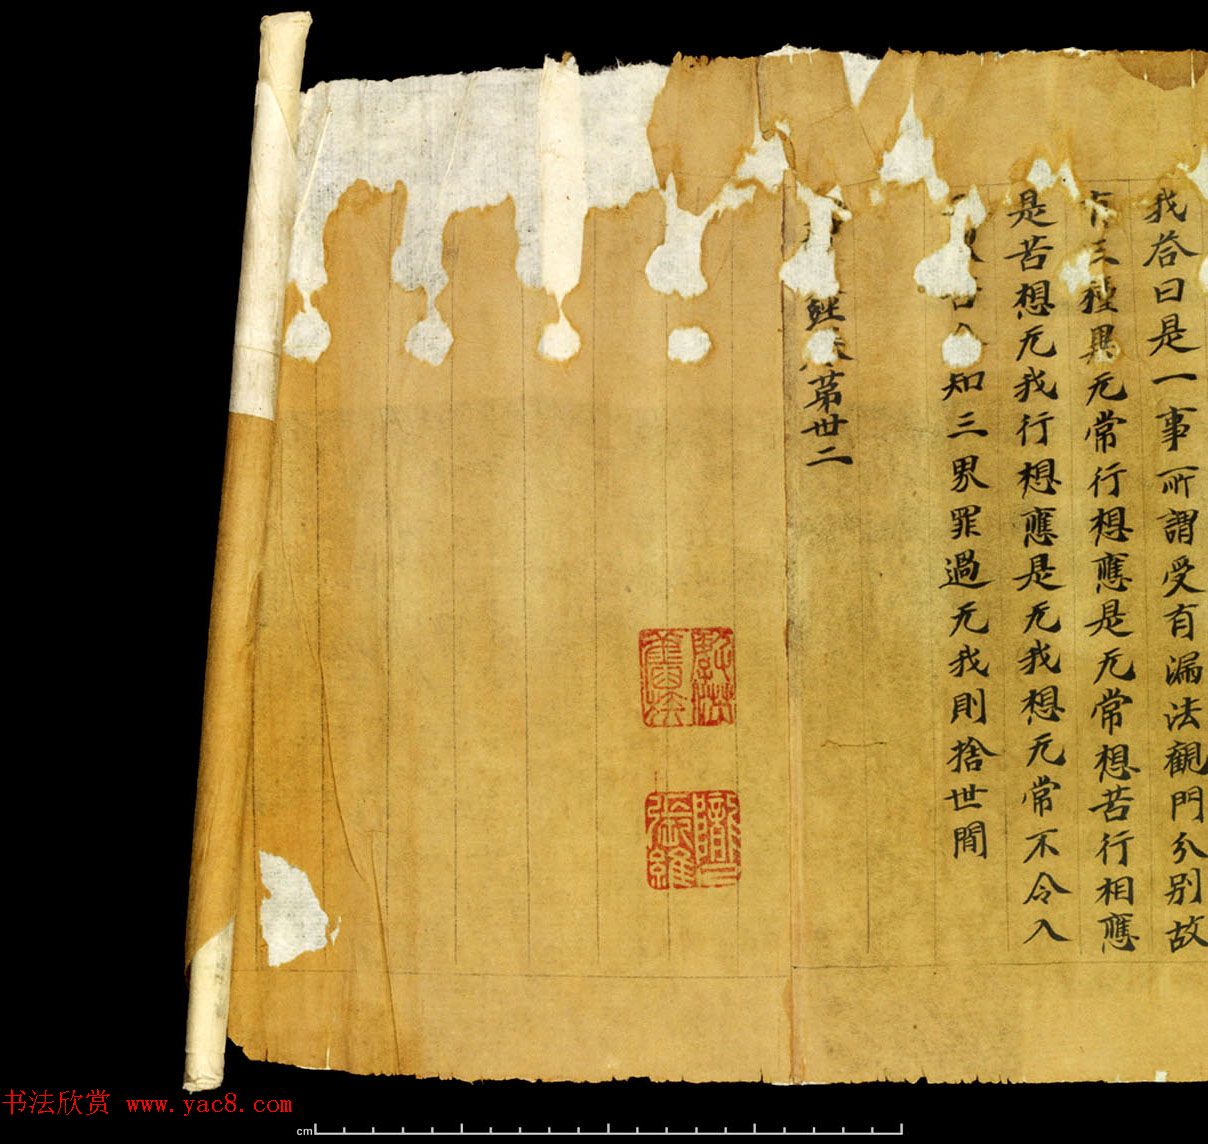 我荅曰是一事所謂受有漏法觀門分別故
有三種異无常行想應是无常想苦行相應
是苦想无我行想應是无我想无常不令入
知三界罪過无我則捨世間
經 第卅二
隴 張維
书法欣赏 www.yac8.com
cm